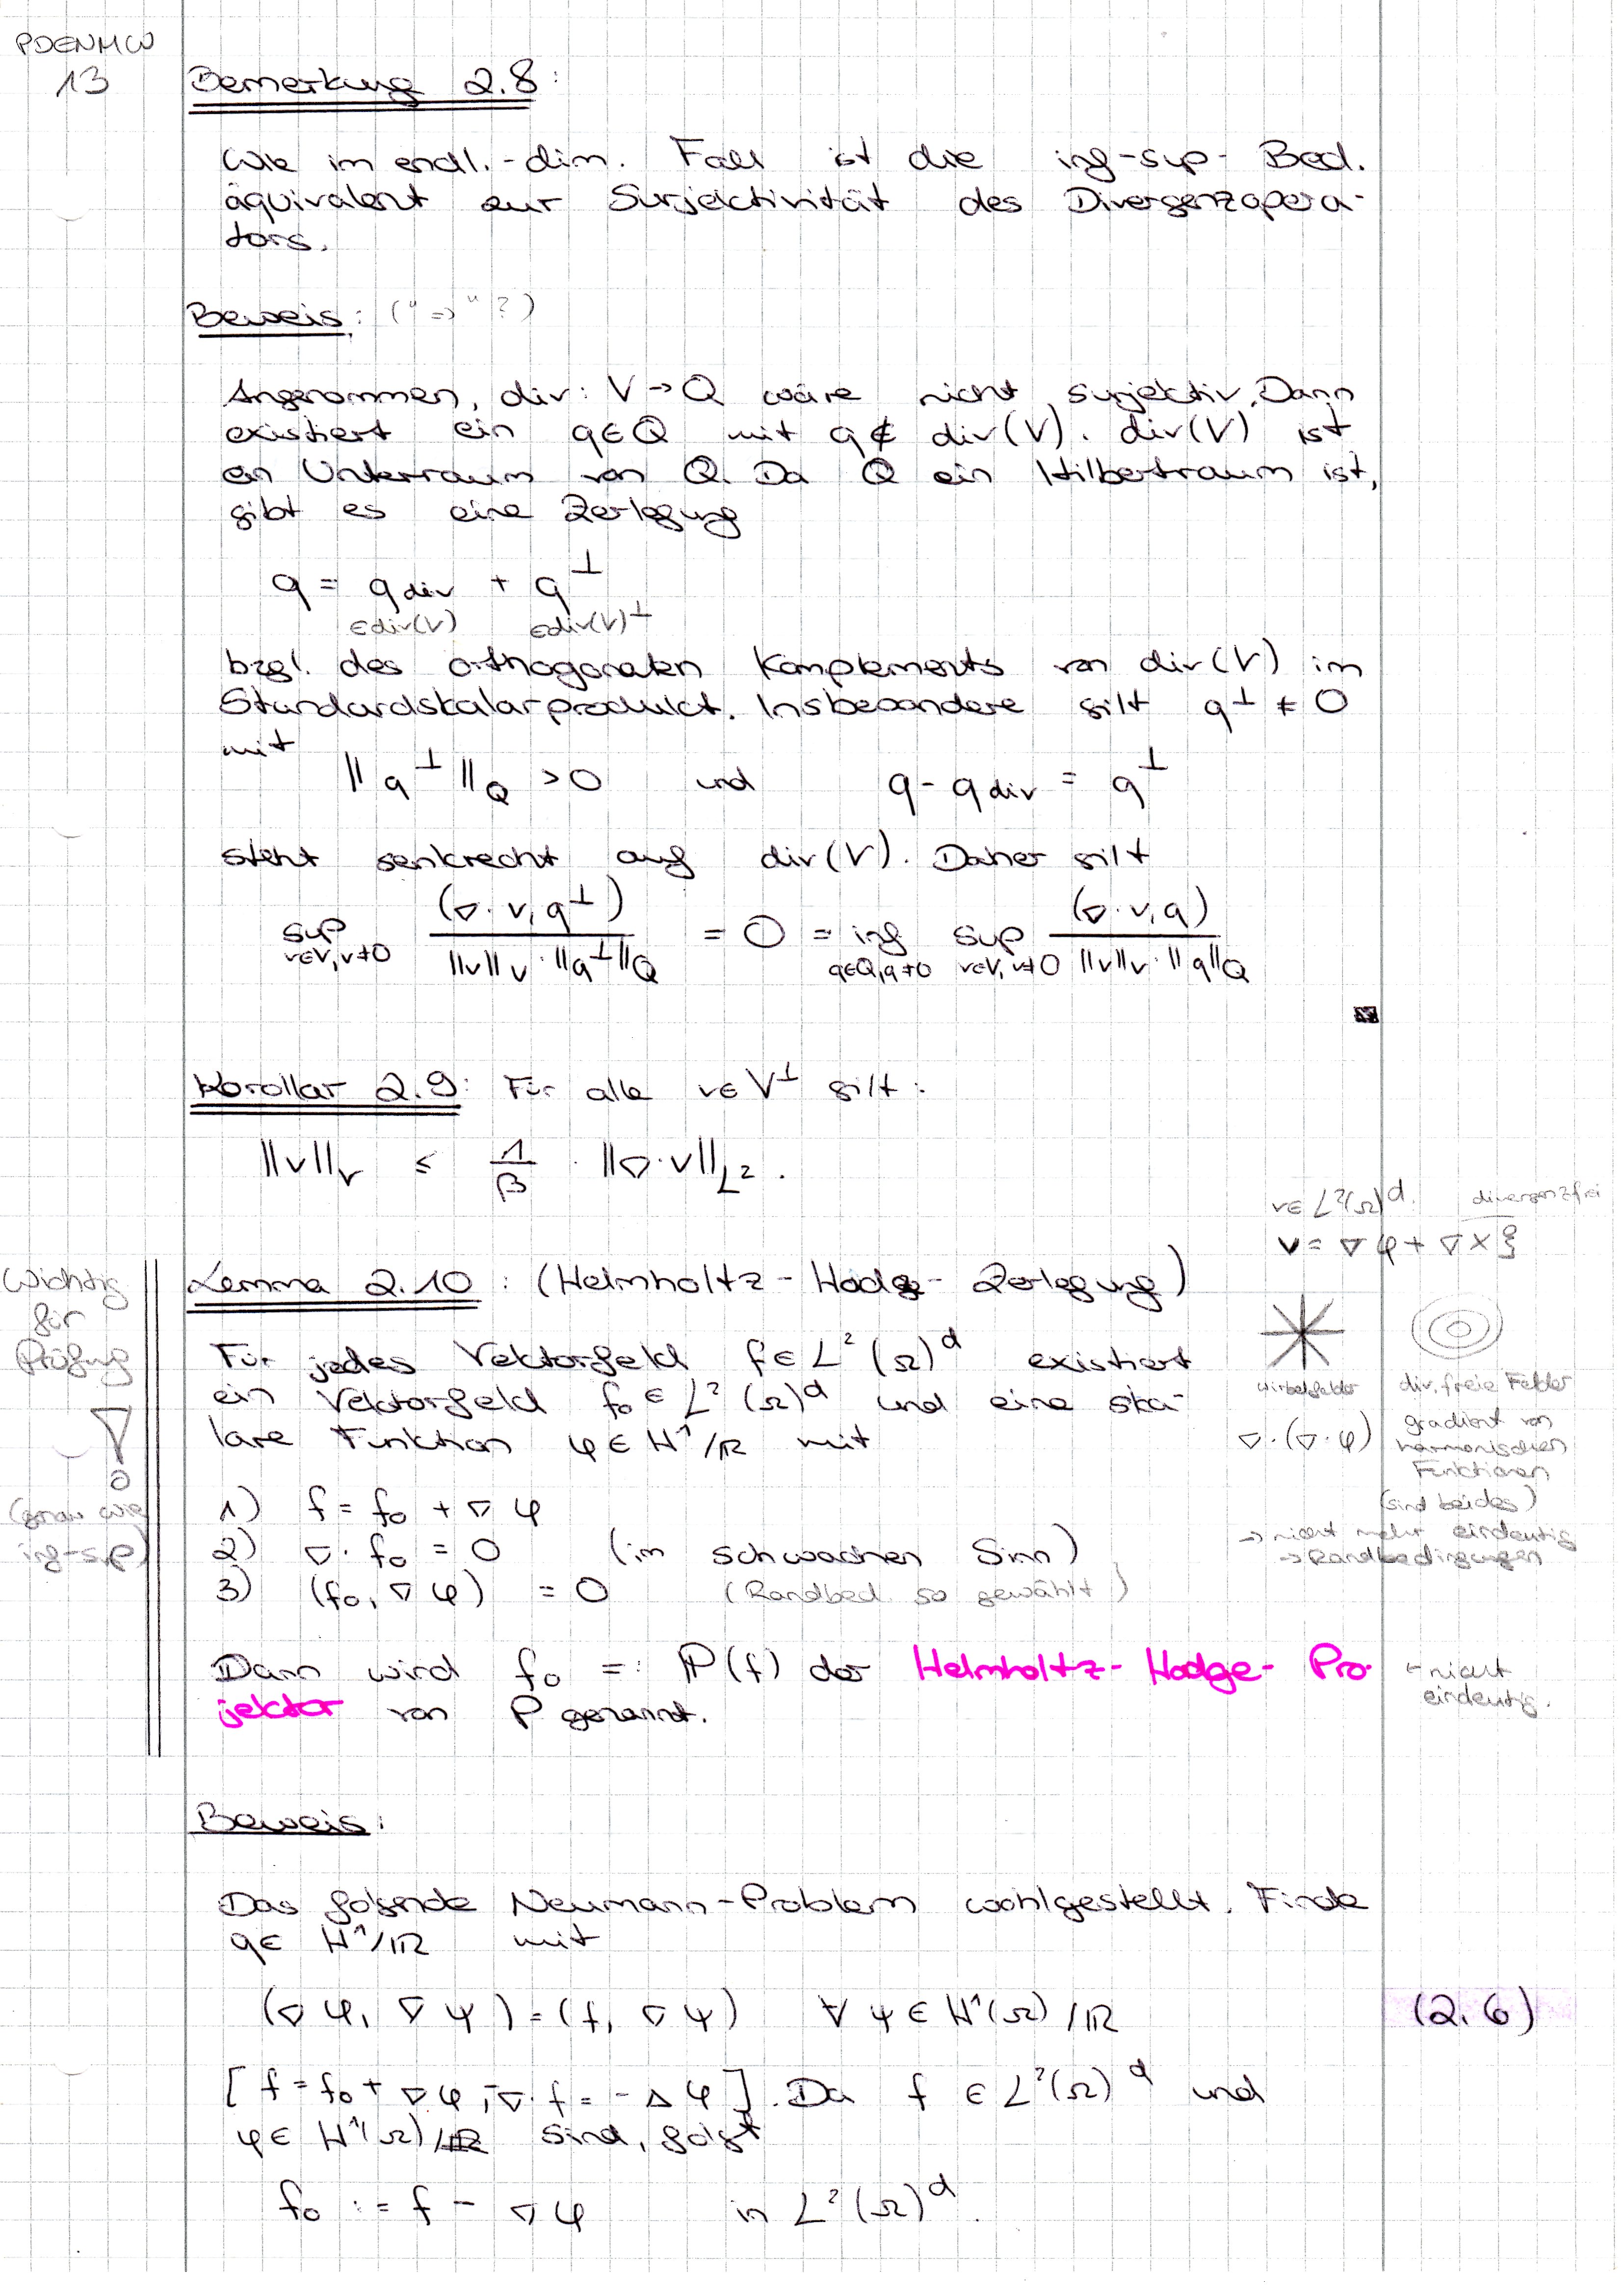 PDENMW
13
Bemerkung 2.8:
Wie im endl.-dim. Fall ist die inf-sup-Bed.
äquivalent zur Surjektivität des Divergenzopera-
tors.
Beweis: ("⇒"?)
Angenommen, div: V→Q wäre nicht surjektiv. Dann
existiert ein q∈Q mit q∉ div(V). div(V) ist
ein Unterraum von Q. Da Q ein Hilbertraum ist,
gibt es eine Zerlegung
q = q_div + q^⊥
∈div(V) ∈div(V)^⊥
bzgl. des orthogonalen Komplements von div(V) im
Standardskalarprodukt. Insbesondere gilt q^⊥ ≠ 0
mit
||q^⊥||_Q > 0 und q - q_div = q^⊥
steht senkrecht auf div(V). Daher gilt
sup_{v∈V, v≠0} (∇·v, q^⊥) / (||v||_V · ||q^⊥||_Q) = 0 = inf_{q∈Q, q≠0} sup_{v∈V, v≠0} (∇·v, q) / (||v||_V · ||q||_Q)
Korollar 2.9: Für alle v∈V^⊥ gilt:
||v||_V ≤ 1/β · ||∇·v||_{L²}.
v∈L²(Ω)^d. divergenzfrei
v = ∇φ + ∇×ξ
Wichtig
für
Prüfung
!
(genau wie
inf-sup)
Lemma 2.10: (Helmholtz-Hodge-Zerlegung)
Für jedes Vektorfeld f∈L²(Ω)^d existiert
ein Vektorfeld f₀∈L²(Ω)^d und eine ska-
lare Funktion φ∈H¹/ℝ mit
1) f = f₀ + ∇φ
2) ∇·f₀ = 0 (im schwachen Sinn)
3) (f₀, ∇φ) = 0 (Randbed. so gewählt)
Wirbelfelder
div.freie Felder
∇·(∇·φ)
gradient von
harmonischen
Funktionen
(sind beides)
→ nicht mehr eindeutig
→ Randbedingungen
Dann wird f₀ =: ℙ(f) der Helmholtz-Hodge-Pro-
jektor von P genannt.
←nicht
eindeutig.
Beweis:
Das folgende Neumann-Problem wohlgestellt. Finde
q∈ H¹/ℝ mit
(∇φ, ∇ψ) = (f, ∇ψ) ∀ψ∈H¹(Ω)/ℝ (2.6)
[f = f₀ + ∇φ, -∇·f = -Δφ]. Da f ∈L²(Ω)^d und
φ∈ H¹(Ω)/ℝ sind, folgt
f₀ := f - ∇φ in L²(Ω)^d.